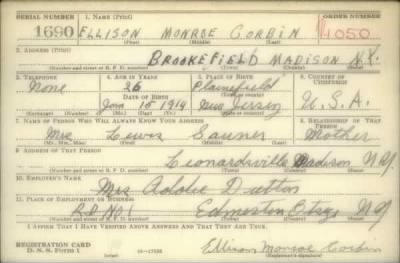 SERIAL NUMBER 1. NAME (Print) ORDER NUMBER
1690 ELLISON MONROE CORBIN 1050
(First) (Middle) (Last)
2. ADDRESS (Print)
BROOKFIELD MADISON N.Y.
(Number and street or R. F. D. number) (Town) (County) (State)
3. TELEPHONE 4. AGE IN YEARS 5. PLACE OF BIRTH 6. COUNTRY OF CITIZENSHIP
None 26 Plainefield
DATE OF BIRTH
Jan 15 1914 New Jersey U.S.A.
(Exchange) (No.) (Mo.) (Day) (Yr.) (State or country)
7. NAME OF PERSON WHO WILL ALWAYS KNOW YOUR ADDRESS 8. RELATIONSHIP OF THAT PERSON
Mrs Lewis Mother
(Mr., Mrs., Miss) (First) (Middle) (Last)
9. ADDRESS OF THAT PERSON
Leonardsville Madison NY
(Number and street or R. F. D. number) (Town) (County) (State)
10. EMPLOYER'S NAME
Mrs Addie Dutton
11. PLACE OF EMPLOYMENT OR BUSINESS
R.D. No 1 Edmeston Otsego NY
(Number and street or R. F. D. number) (Town) (County) (State)
I AFFIRM THAT I HAVE VERIFIED ABOVE ANSWERS AND THAT THEY ARE TRUE.
REGISTRATION CARD
D. S. S. Form 1 Ellison Monroe Corbin
(Registrant's signature)